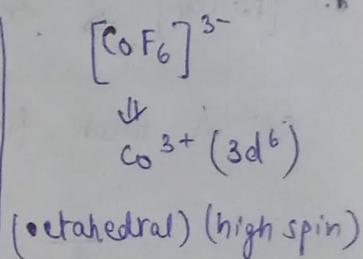 [CoF₆]³⁻
⇓
Co³⁺ (3d⁶)
(octahedral) (high spin)